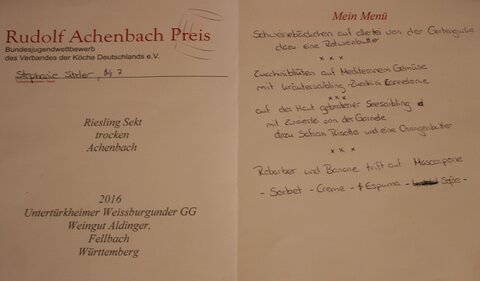 Rudolf Achenbach Preis
Bundesjugendwettbewerb
des Verbandes der Köche Deutschlands e.V.
Stephanie
Riesling Sekt
trocken
Achenbach
2016
Untertürkheimer Weissburgunder GG
Weingut Aldinger,
Fellbach
Württemberg
Mein Menü
Schweinebäckchen auf allerlei von der Gartengurke
dazu eine Rotweinbutter
x x x
Zucchiniblüten auf Mediteranem Gemüse
mit Kräuterseitling - Zucchini Cannelonie
x x x
auf der Haut gebratener Seesaibling
mit von der
dazu Safran Risotto und eine Orangenbutter
x x x
Rabarber und Banane trift auf Mascarpone
- Sorbet - Creme - & Espuma - Soße -